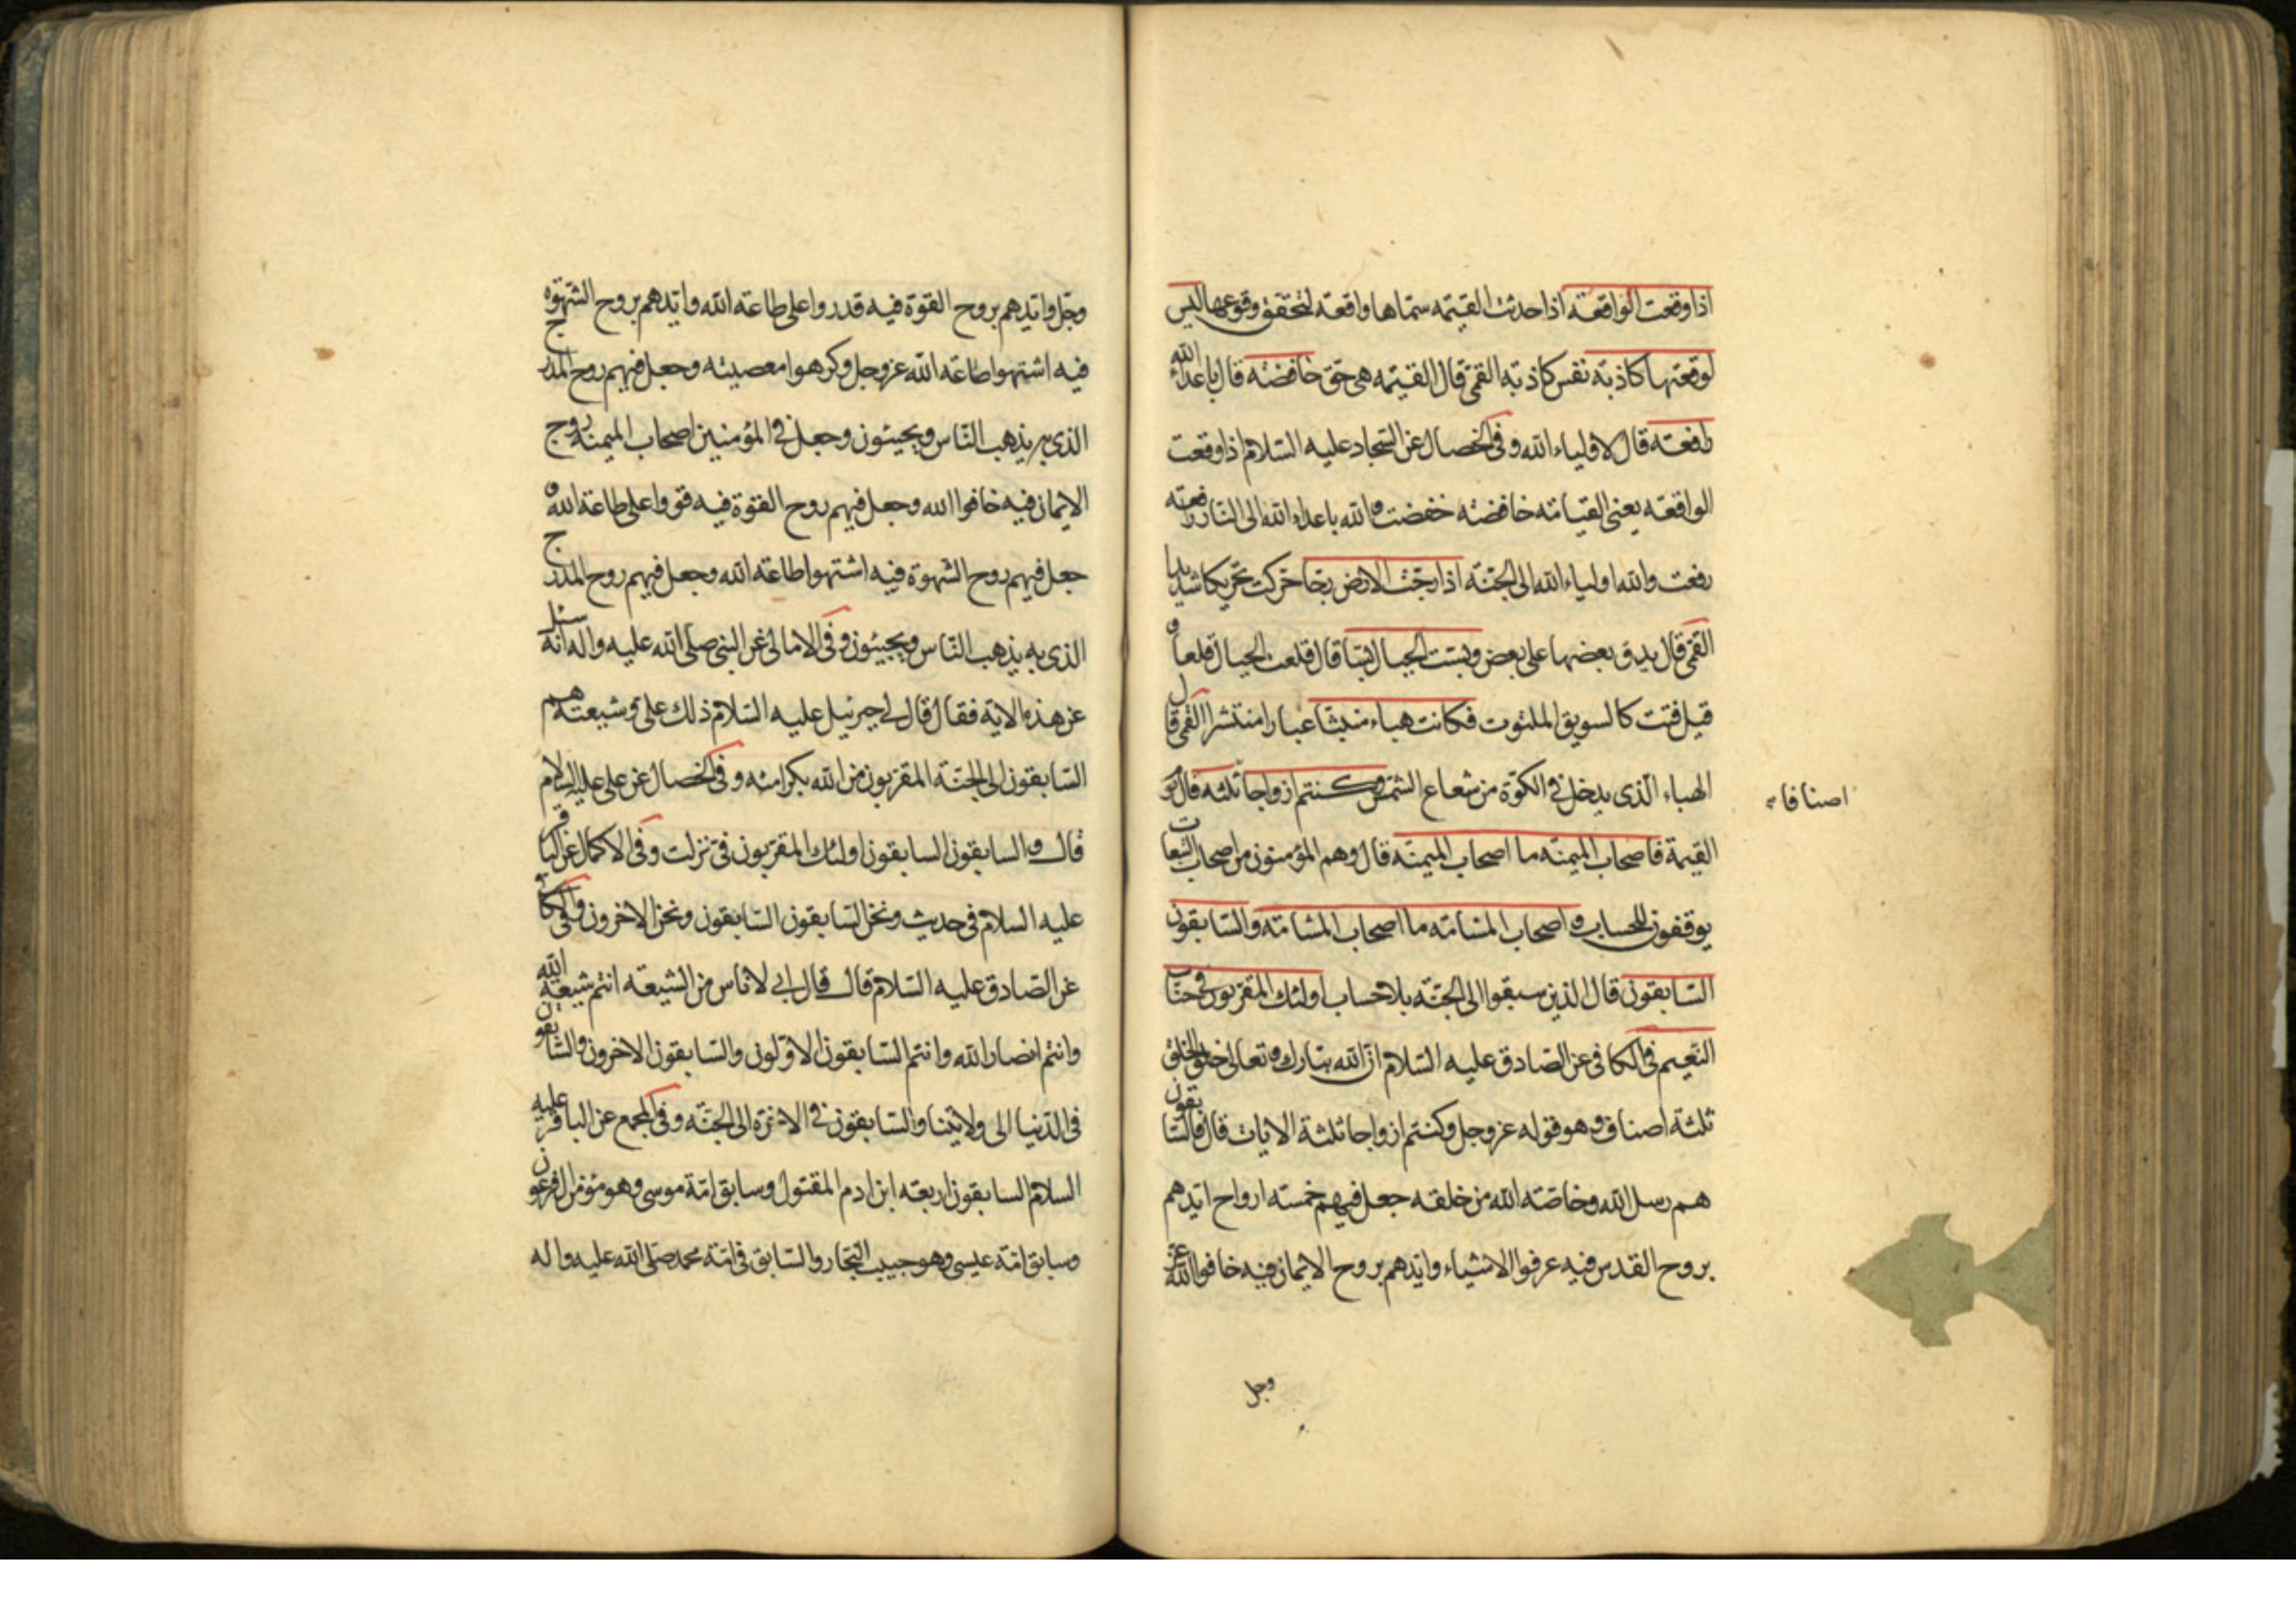 اذا وقعت الواقعة اذا حدثت القيمه سماها واقعة لتحقق وقوعها ليس
لوقعتها كاذبة نفس كاذبة القمى قال القيمه هى حق خافضة قال باعداء الله
رافعة قال لاولياء الله وفى الخصال عن السجاد عليه السلام اذا وقعت
الواقعة يعنى القيامة خافضة خفضت والله باعداء الله الى النار رافعة
رفعت والله اولياء الله الى الجنة اذا رجت الارض رجا حركت تحريكا شديدا
القمى قال يدق بعضها على بعض وبست الجبال بسا قال قلعت الجبال قلعا و
قيل فتت كالسويق الملتوت فكانت هباء منبثا غبارا منتشرا القمى قال
الهباء الذى يدخل فى الكوة من شعاع الشمس وكنتم ازواجا ثلثة قال يوم
اصنافا
القيمة فاصحاب الميمنة ما اصحاب الميمنة قال وهم المؤمنون من اصحاب التبعات
يوقفون للحساب واصحاب المشامة ما اصحاب المشامة والسابقون
السابقون قال الذين سبقوا الى الجنة بلا حساب اولئك المقربون فى جنات
النعيم فى الكافى عن الصادق عليه السلام ان الله تبارك وتعالى خلق الخلق
ثلثة اصناف وهو قوله عز وجل وكنتم ازواجا ثلثة الايات قال فالسابقون
هم رسل الله وخاصة الله من خلقه جعل فيهم خمسة ارواح ايدهم
بروح القدس فيه عرفوا الاشياء وايدهم بروح الايمان فيه خافوا الله عز
وجل
وجل وايدهم بروح القوة فيه قدروا على طاعة الله وايدهم بروح الشهوة
فيه اشتهوا طاعة الله عز وجل وكرهوا معصيته وجعل فيهم روح المدرج
الذى به يذهب الناس ويجيئون وجعل فى المؤمنين اصحاب الميمنة روح
الايمان فيه خافوا الله وجعل فيهم روح القوة فيه قووا على طاعة الله و
جعل فيهم روح الشهوة فيه اشتهوا طاعة الله وجعل فيهم روح المدرج
الذى به يذهب الناس ويجيئون وفى الامالى عن النبى صلى الله عليه واله انه سئل
عن هذه الاية فقال قال لى جبرئيل عليه السلام ذلك على وشيعته هم
السابقون الى الجنة المقربون من الله بكرامته وفى الخصال عن على عليه السلام
قال والسابقون السابقون اولئك المقربون فى نزلت وفى الاكمال عن الباقر
عليه السلام فى حديث ونحن السابقون السابقون ونحن الاخرون وفى الكا
عن الصادق عليه السلام قال قال ابى لاناس من الشيعة انتم شيعة الله
وانتم انصار الله وانتم السابقون الاولون والسابقون الاخرون والسابقون
فى الدنيا الى ولايتنا والسابقون فى الاخرة الى الجنة وفى المجمع عن الباقر عليه
السلام السابقون اربعة ابن ادم المقتول وسابق امة موسى وهو مؤمن ال فرعون
وسابق امة عيسى وهو حبيب النجار والسابق فى امة محمد صلى الله عليه واله